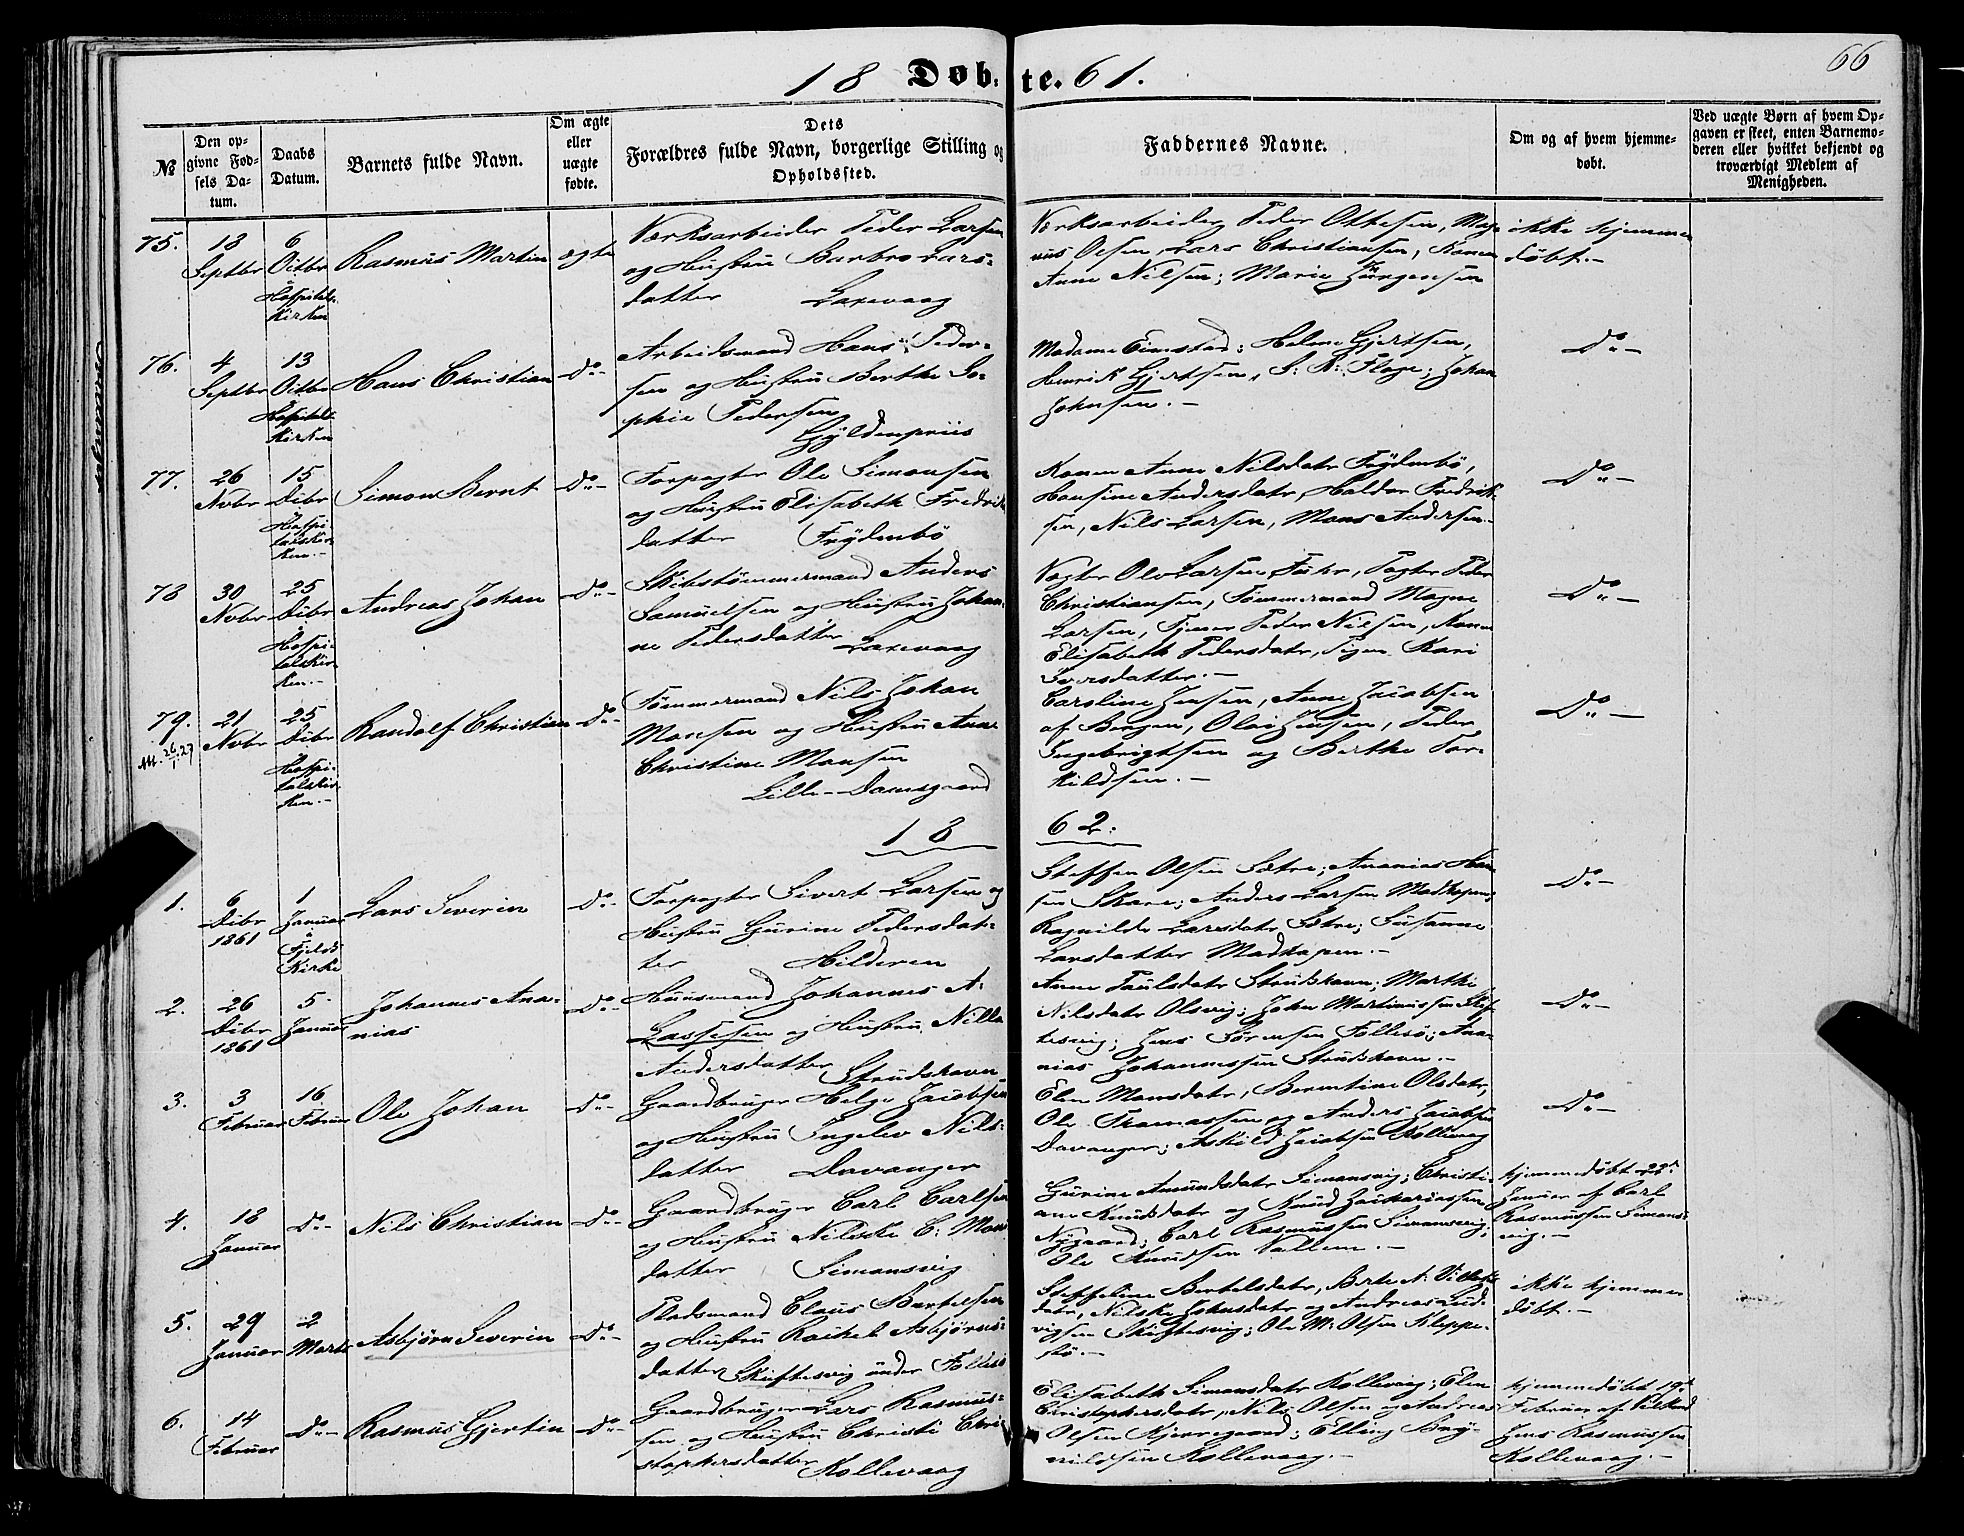 66
18 Døb- te. 61.
№
Den opgivne Fødsels Datum.
Daabs Datum.
Barnets fulde Navn.
Om ægte eller uægte fødte.
Dets Forældres fulde Navn, borgerlige Stilling og Opholdssted.
Faddernes Navne.
Om og af hvem hjemmedøbt.
Ved uægte Børn af hvem Opgaven er skeet, enten Barnemoderen eller hvilket bekjendt og troværdigt Medlem af Menigheden.
75.
18 Septbr
6 Octbr
Hospitals Kirken
Rasmus Martin
ægte
Værksarbeider Peder Larsen
og Hustru Barbro Lars-
datter Laxevaag
Værksarbeider Peder Ottesen, Mag-
nus Olsen, Lars Christiansen, Konen
Anne Nilsen; Marie Jürgensen
ikke hjemme
døbt.-
76.
4 Septbr
13 Octbr
Hospitals Kirken
Hans Christian
Do-
Arbeidsmand Hans Peder-
sen og Hustru Berthe So-
phie Pedersen
Gyldenpriis
Madame Eimstad; Helene Gjertsen,
Henrik Gjertsen, S: K: Floge; Johan
Johnsen.-
Do-
77.
26 Novbr
15 Dcbr
Hospi-
talskir-
ken.-
Simon Bernt
Do-
Forpagter Ole Simonsen
og Hustru Elisabeth Fredriks
datter Frydenbö
Konen Anne Nilsdatr Frydenbö,
Hansine Andersdatr, Haldor Fredrik-
sen, Nils Larsen, Mons Andersen.-
Do-
78
30 Novbr
25 Dcbr
Hospi-
talskir-
ken.-
Andreas Johan
Do-
Skibstømmermand Anders
Samuelsen og Hustru Johan-
ne Pedersdatter Laxevaag
Vogter Ole Larsen Fuhr, Vogter Peder
Christiansen, Tømmermand Magne
Larsen, Tjener Peder Nilsen, Konen
Elisabeth Pedersdatr, Pigen Kari
Iversdatter.-
Do-
79.
21 Novbr
25 Dcbr
Hospi-
talskir-
ken.-
Randolf Christian
Do-
Tømmermand Nils Johan
Monsen og Hustru Ane
Christine Monsen
Lille-Damsgaard
Caroline Jensen, Anne Jacobsen
af Bergen, Olai Jensen, Peder
Ingebrigtsen og Berthe Tor-
kildsen.-
Do-
18 62.
1.
6 Dcbr 1861
1 Januar
Fjelds Kirke
Lars Severin
Do-
Forpagter Sivert Larsen og
Hustru Gurine Pedersdat-
ter Hilderen
Steffen Olsen Sætre; Ananias Han-
sen Skare; Anders Larsen Madkopen;
Ragnilde Larsdatr Sætre; Susanne
Larsdatter Madkopen.-
Do-
2.
26 Dcbr 1861
5 Januar
Johannes Ana-
nias
Do-
Huusmand Johannes A-
Lassesen og Hustru Nille
Andersdatter Strudshavn
Anne Paulsdatr Strudshavn; Marthe
Nilsdatr Olsvig; John Martinussen Skif-
tesvig; Jens Sørensen Follesö; Ana-
nias Johannessen Strudshavn.-
Do-
3.
3 Februar
16 Februar
Ole Johan
Do-
Gaardbruger Helge Jacobsen
og Hustru Ingelev Nils-
datter Davanger
Elen Monsdatr, Berentine Olsdatr,
Ole Thomassen og Anders Jacobsen
Davanger; Askild Jacobsen Kollevaag
Do-
4.
18 Januar
Do-
Nils Christian
Do-
Gaardbruger Carl Carlsen
og Hustru Nilske C. Mons
datter Simonsvig
Gurine Amundsdatr Simonsvig; Christi-
ane Knudsdatr og Knud Zachariassen
Nygaard; Carl Rasmussen Simonsvig;
Ole Knudsen Vallem.-
hjemmedöbt 22de
Januar af Carl
Rasmussen Simons-
vig.-
5.
29 Januar
2 Marts
Asbjørn Severin
Do-
Pladsmand Claus Bertelsen
og Hustru Rachel Asbjørns-
datter Skiftesvig under Follesö
Steffeline Bertelsdatr, Berte N. Villads
datr, Nilske Johnsdatr og Andreas Lud-
vigsen Skiftesvig; Ole M: Olsen Kleppe-
stö.-
ikke hjemme
döbt.-
6.
14 Februar
Do-
Rasmus Gjertin
Do-
Gaardbruger Lars Rasmus-
sen og Hustru Christi Chri-
stophersdatter Kollevaag
Elisabeth Simonsdatr Kollevaag; Elen
Christophersdatr, Nils Olsen og Andreas
Olsen Kjerregaard; Elling Bry-
nildsen Kollevaag.-
hjemmedöbt 19de
Februar af
Jens Rasmussen
Kollevaag.-